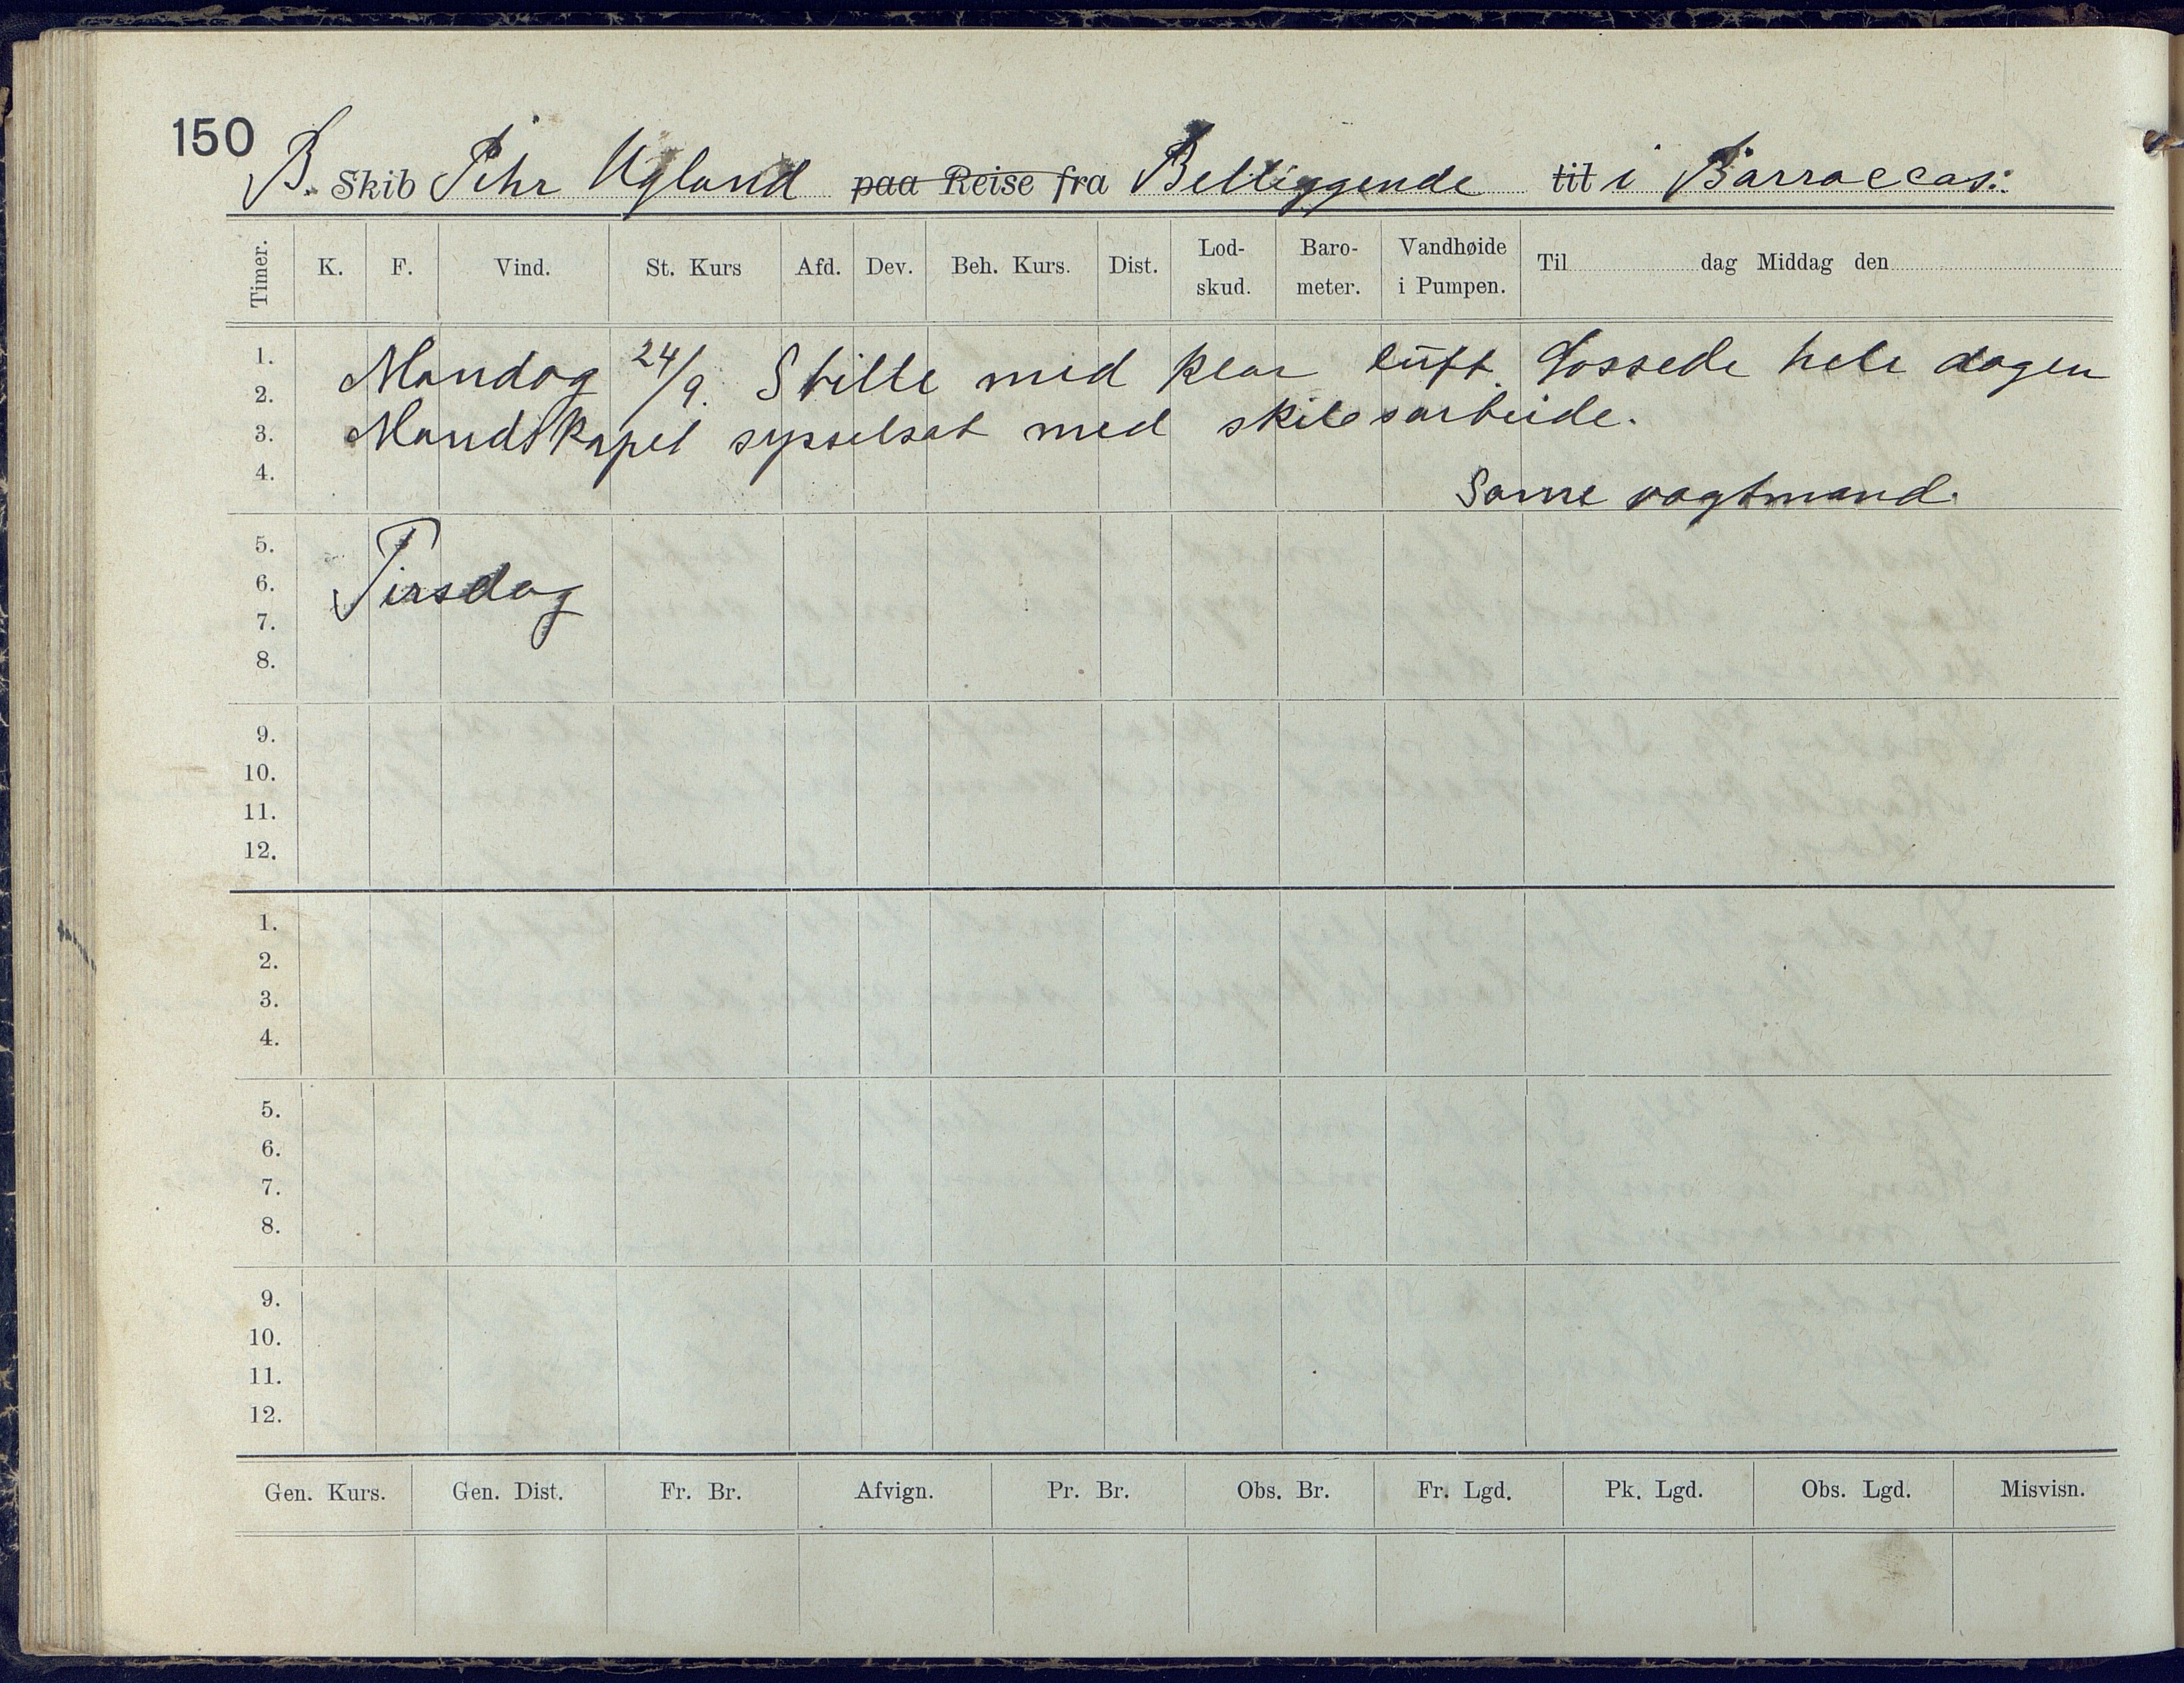 150
B. Skib Pehr Ugland paa Reise fra Belliggende til i Barraccas:
Timer. K. F. Vind. St. Kurs Afd. Dev. Beh. Kurs. Dist. Lod-skud. Baro-meter. Vandhøide i Pumpen. Til dag Middag den
1.
Mandag 24/9. Stille med klar luft. Lossede hele dagen
2.
3.
Mandskapet sysselsat med skibsarbeide.
4.
Same vagtmand.
5.
6.
Tirsdag
7.
8.
9.
10.
11.
12.
1.
2.
3.
4.
5.
6.
7.
8.
9.
10.
11.
12.
Gen. Kurs. Gen. Dist. Fr. Br. Afvign. Pr. Br. Obs. Br. Fr. Lgd. Pk. Lgd. Obs. Lgd. Misvisn.